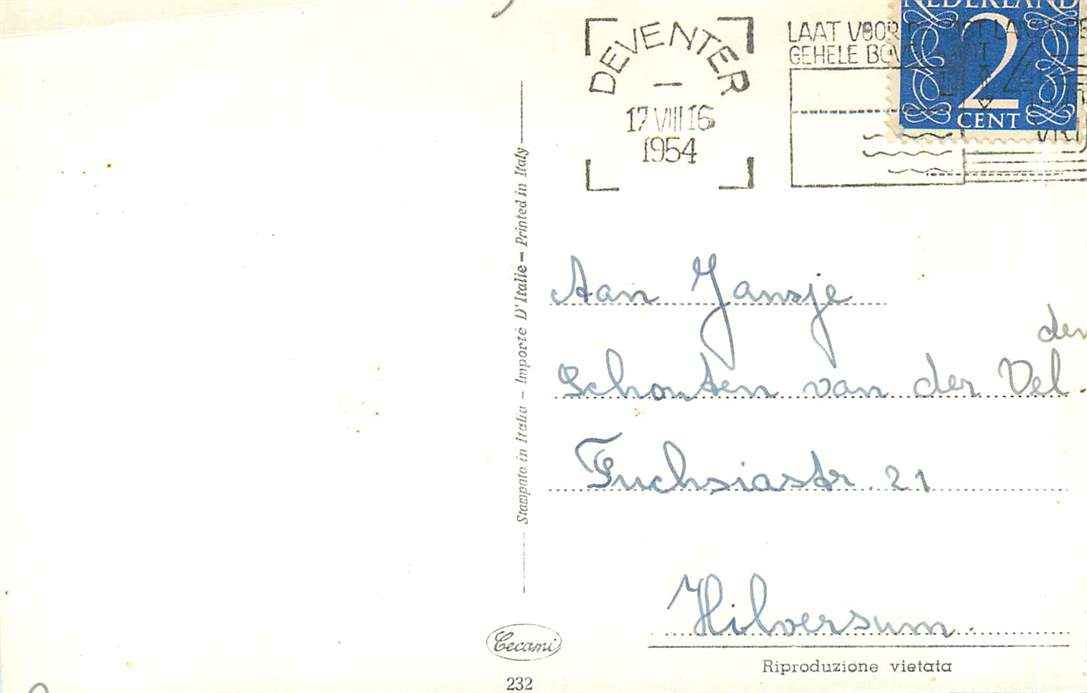 NEDERLAND
2
CENT
DEVENTER
17 VIII 16
1954
LAAT VOOR
GEHELE
Aan Jansje
Schouten van der Vel.
den
Fuchsiastr. 21
Hilversum.
Stampato in Italia - Importé D'Italie - Printed in Italy
Cecami
232
Riproduzione vietata